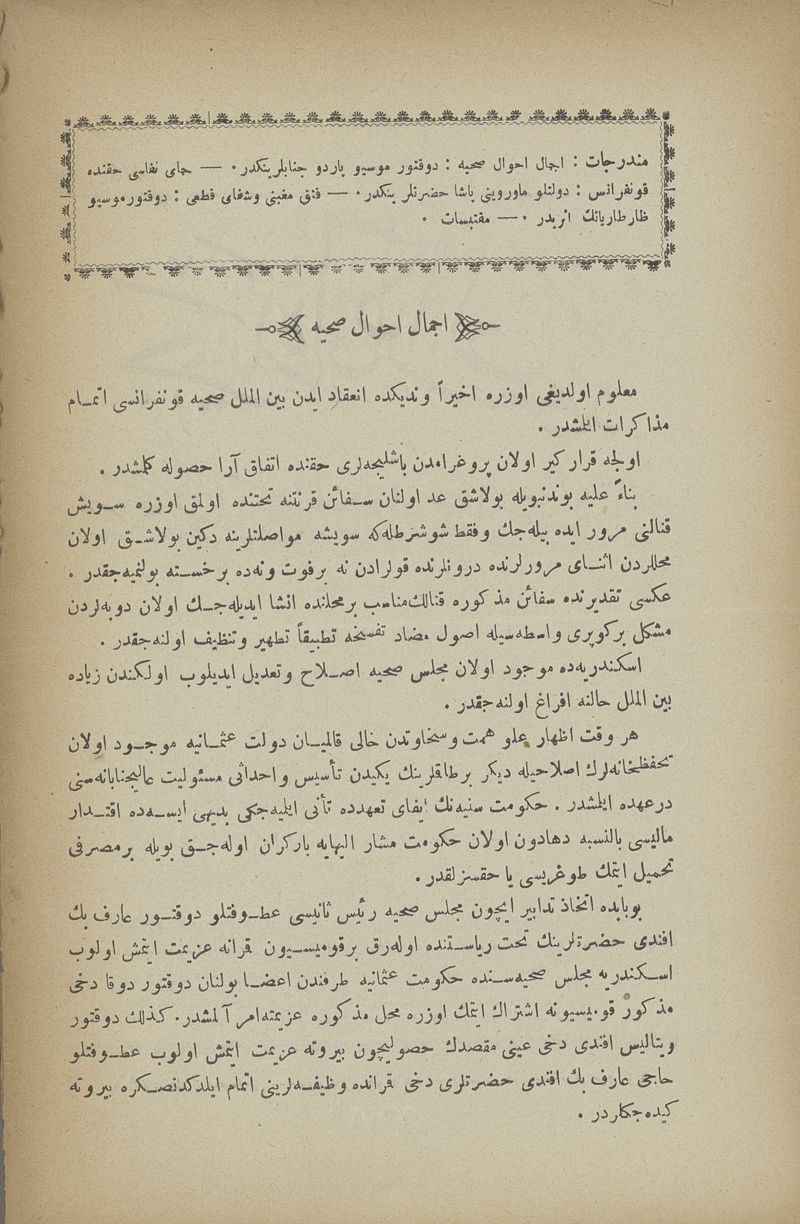 مندرجات : اجمال احوال صحیه : دوقتور موسیو پاردو جنابلرینکدر ۰ — چای نفاسی حقنده
قونفرانس : دولتلو ماوروینی پاشا حضرتلرینکدر ۰ — فتق مغبنی وشفای قطعی : دوقتور موسیو
ظارطاریانك اثریدر ۰ — مقتبسات ۰
اجمال احوال صحیه
معلوم اولدیغی اوزره اخیراً وندیکده انعقاد ایدن بین الملل صحیه قونفرانسی اتمـام
مذاکرات ایلشدر ۰
اولجه قرارکیر اولان پروغرامدن باشلیجه‌لری حقنده اتفاق آرا حصوله کلمشدر ۰
بناءً علیه بوندنبویله بولاشق عد اولنان سـفائن قرنتنه تحتنده اولمق اوزره سـویش
قنالنی مرور ایده بیله‌جك وفقط شوشرطله‌که سویشه مواصلتلرینه دکین بولاشـق اولان
محللردن اثنـای مرورلرنده درونلرنده قولرادن نه برفوت ونه‌ده برخسـته بولنمیه‌جقدر ۰
عکسی تقدیرنده سفائن مذکوره قنالك مناسب برمحلنده انشا ایدیله‌جـك اولان دوبه‌لردن
مشکل برکوپری واسطه‌سیله اصول مضاد تفسخه تطبیقاً تطهیر وتنظیف اولنه‌جقدر ۰
اسکندریه‌ده موجود اولان مجلس صحیه اصـلاح وتعدیل ایدیلوب اولکندن زیاده
بین الملل حالنه افراغ اولنه‌جقدر ۰
هر وقت اظهار علو همت وسخاوتدن خالی قالمیـان دولت عثمـانیه موجـود اولان
تحفظخانه‌لرك اصلاحیله دیکر برطاقلرینك یکیدن تأسیس واحداثی مسئولیت عالیجنابانه‌سنی
درعهده ایلشدر ۰ حکومت سنیه‌نك ایفای تعهدده تأنی ایلیه‌جکی بدیهی ایسـه‌ده اقتـدار
مالیسی بالنسبه دهادون اولان حکومت مشار الیهایه بارکران اوله‌جـق بویله برمصرفی
تحمیل ایتمك طوغریسی یا حقسزلقدر ۰
بوبابده اتخاذ تدابیر ایچون مجلس صحیه رئیس ثانیسی عطـوفتلو دوقتـور عارف بك
افندی حضرتلرینك تحت ریاسـتنده اوله‌رق برقومیسـیون قرانه عزیمت ایتمش اولوب
اسـکندریه مجلس صحیه‌سـنده حکومت عثمانیه طرفندن اعضـا بولنان دوقتور دوقا دخی
مذکور قومیسیونه اشتراك ایتمك اوزره محل مذکوره عزیمته‌امر آلمشدر ۰ کذلك دوقتور
ویتالیس افندی دخی عینی مقصدك حصولیچون بیروته عزیمت ایتمش اولوب عطـوفتلو
حاجی عارف بك افندی حضرتلری دخی قرانده وظیفـه‌لرینی اتمام ایلدکدنصـکره بیروته
کیده‌جکلردر ۰